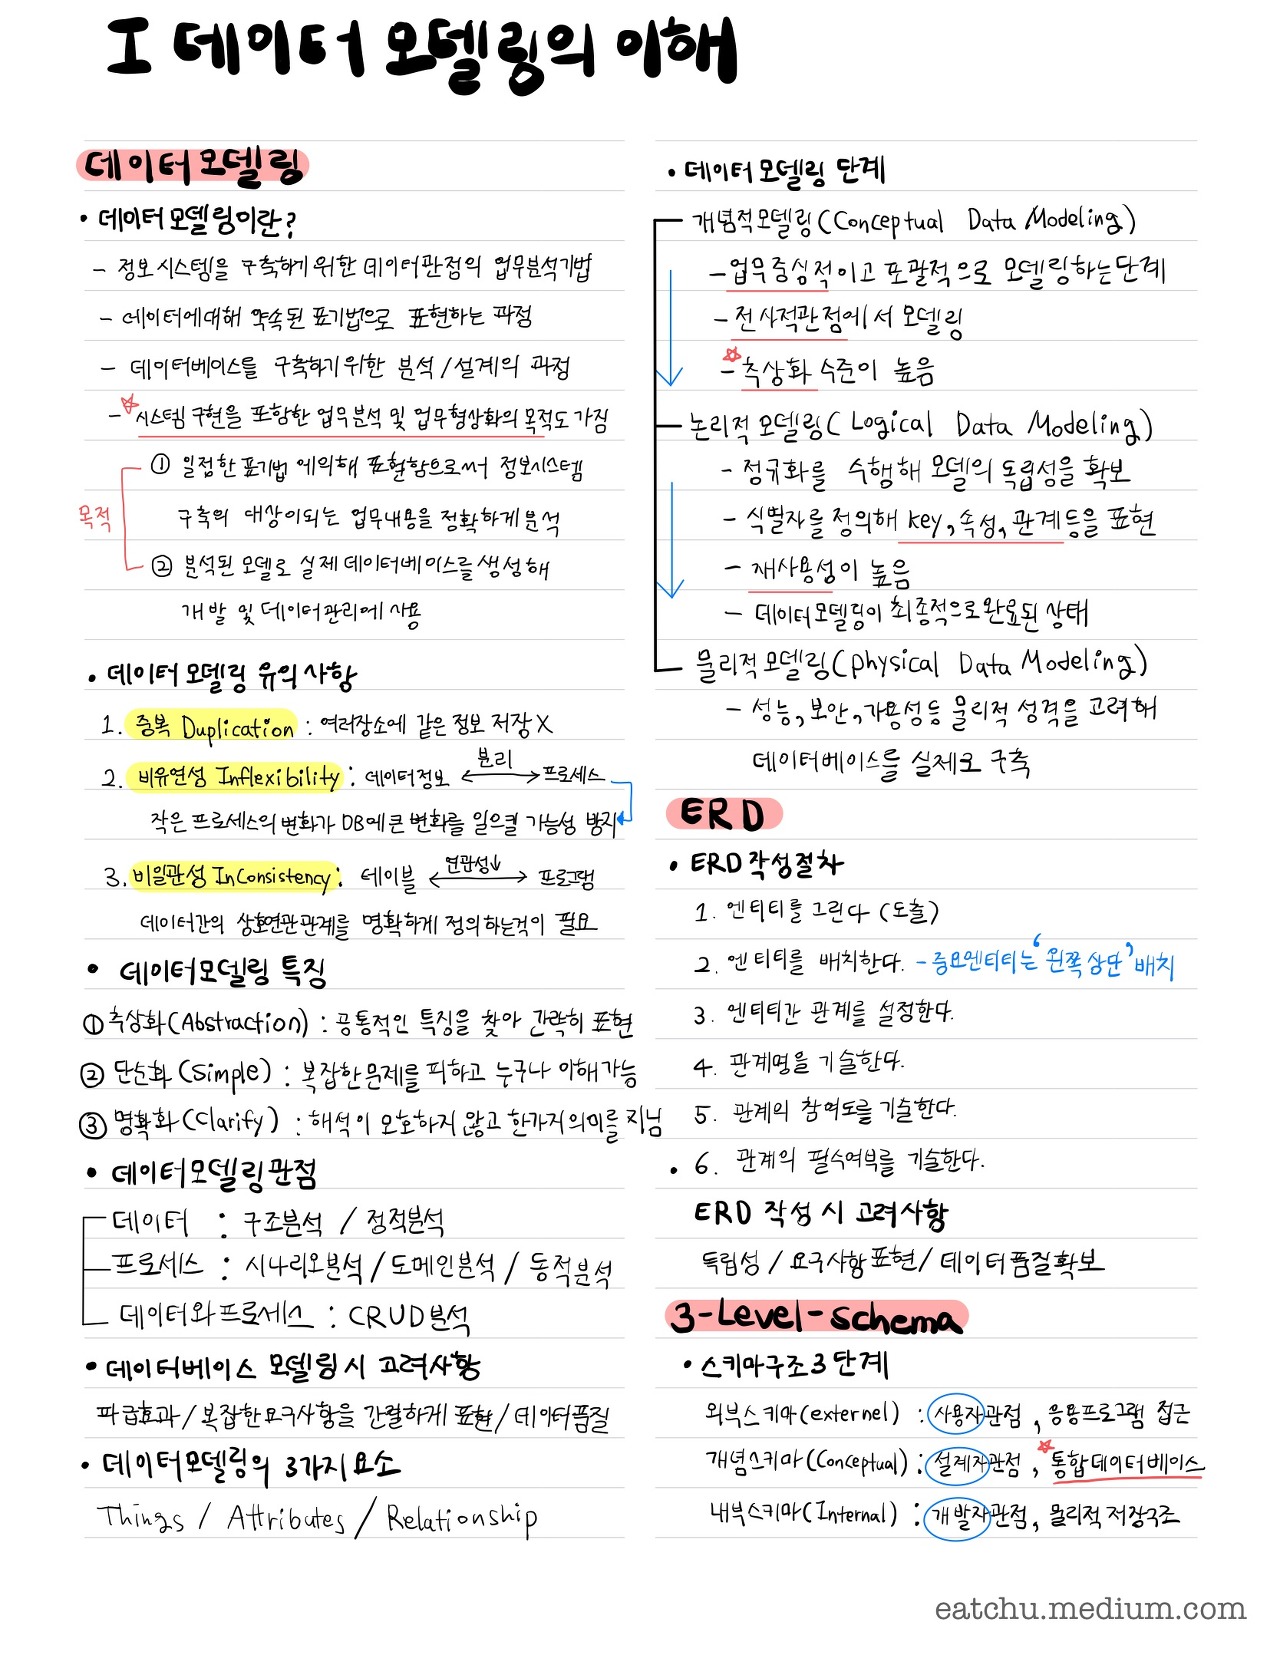 I 데이터 모델링의 이해
데이터 모델링
• 데이터 모델링이란?
- 정보시스템을 구축하기 위한 데이터관점의 업무분석기법
- 데이터에 대해 약속된 표기법으로 표현하는 과정
- 데이터베이스를 구축하기 위한 분석/설계의 과정
- ☆시스템 구현을 포함한 업무분석 및 업무형상화의 목적도 가짐
목적
① 일정한 표기법에 의해 표현함으로써 정보시스템
구축의 대상이 되는 업무내용을 정확하게 분석
② 분석된 모델로 실제 데이터베이스를 생성해
개발 및 데이터관리에 사용
• 데이터 모델링 유의 사항
1. 중복 Duplication : 여러장소에 같은 정보 저장 X
2. 비유연성 Inflexibility : 데이터정보 ←분리→ 프로세스
작은 프로세스의 변화가 DB에 큰 변화를 일으킬 가능성 방지
3. 비일관성 InConsistency : 테이블 ←연관성↓→ 프로그램
데이터간의 상호연관관계를 명확하게 정의하는것이 필요
• 데이터모델링 특징
① 추상화(Abstraction) : 공통적인 특징을 찾아 간략히 표현
② 단순화(Simple) : 복잡한 문제를 피하고 누구나 이해가능
③ 명확화(Clarify) : 해석이 모호하지 않고 한가지 의미를 지님
• 데이터모델링 관점
데이터 : 구조분석 / 정적분석
프로세스 : 시나리오분석 / 도메인분석 / 동적분석
데이터와 프로세스 : CRUD분석
• 데이터베이스 모델링 시 고려사항
파급효과/복잡한 요구사항을 간결하게 표현/데이터품질
• 데이터모델링의 3가지 요소
Things / Attributes / Relationship
• 데이터모델링 단계
개념적모델링(Conceptual Data Modeling)
- 업무중심적이고 포괄적으로 모델링하는 단계
- 전사적관점에서 모델링
☆- 추상화 수준이 높음
논리적 모델링(Logical Data Modeling)
- 정규화를 수행해 모델의 독립성을 확보
- 식별자를 정의해 key, 속성, 관계 등을 표현
- 재사용성이 높음
- 데이터모델링이 최종적으로 완료된 상태
물리적모델링(physical Data Modeling)
- 성능, 보안, 가용성등 물리적 성격을 고려해
데이터베이스를 실제로 구축
ERD
• ERD 작성절차
1. 엔티티를 그린다 (도출)
2. 엔티티를 배치한다. - 중요엔티티는 ‘왼쪽 상단’ 배치
3. 엔티티간 관계를 설정한다.
4. 관계명을 기술한다.
5. 관계의 참여도를 기술한다.
• 6. 관계의 필수여부를 기술한다.
ERD 작성 시 고려사항
독립성 / 요구사항 표현 / 데이터 품질확보
3-Level-Schema
• 스키마구조 3단계
외부스키마(externel) : 사용자관점, 응용프로그램 접근
개념스키마(Conceptual) : 설계자관점, ☆통합데이터베이스
내부스키마(Internal) : 개발자관점, 물리적 저장구조
eatchu.medium.com